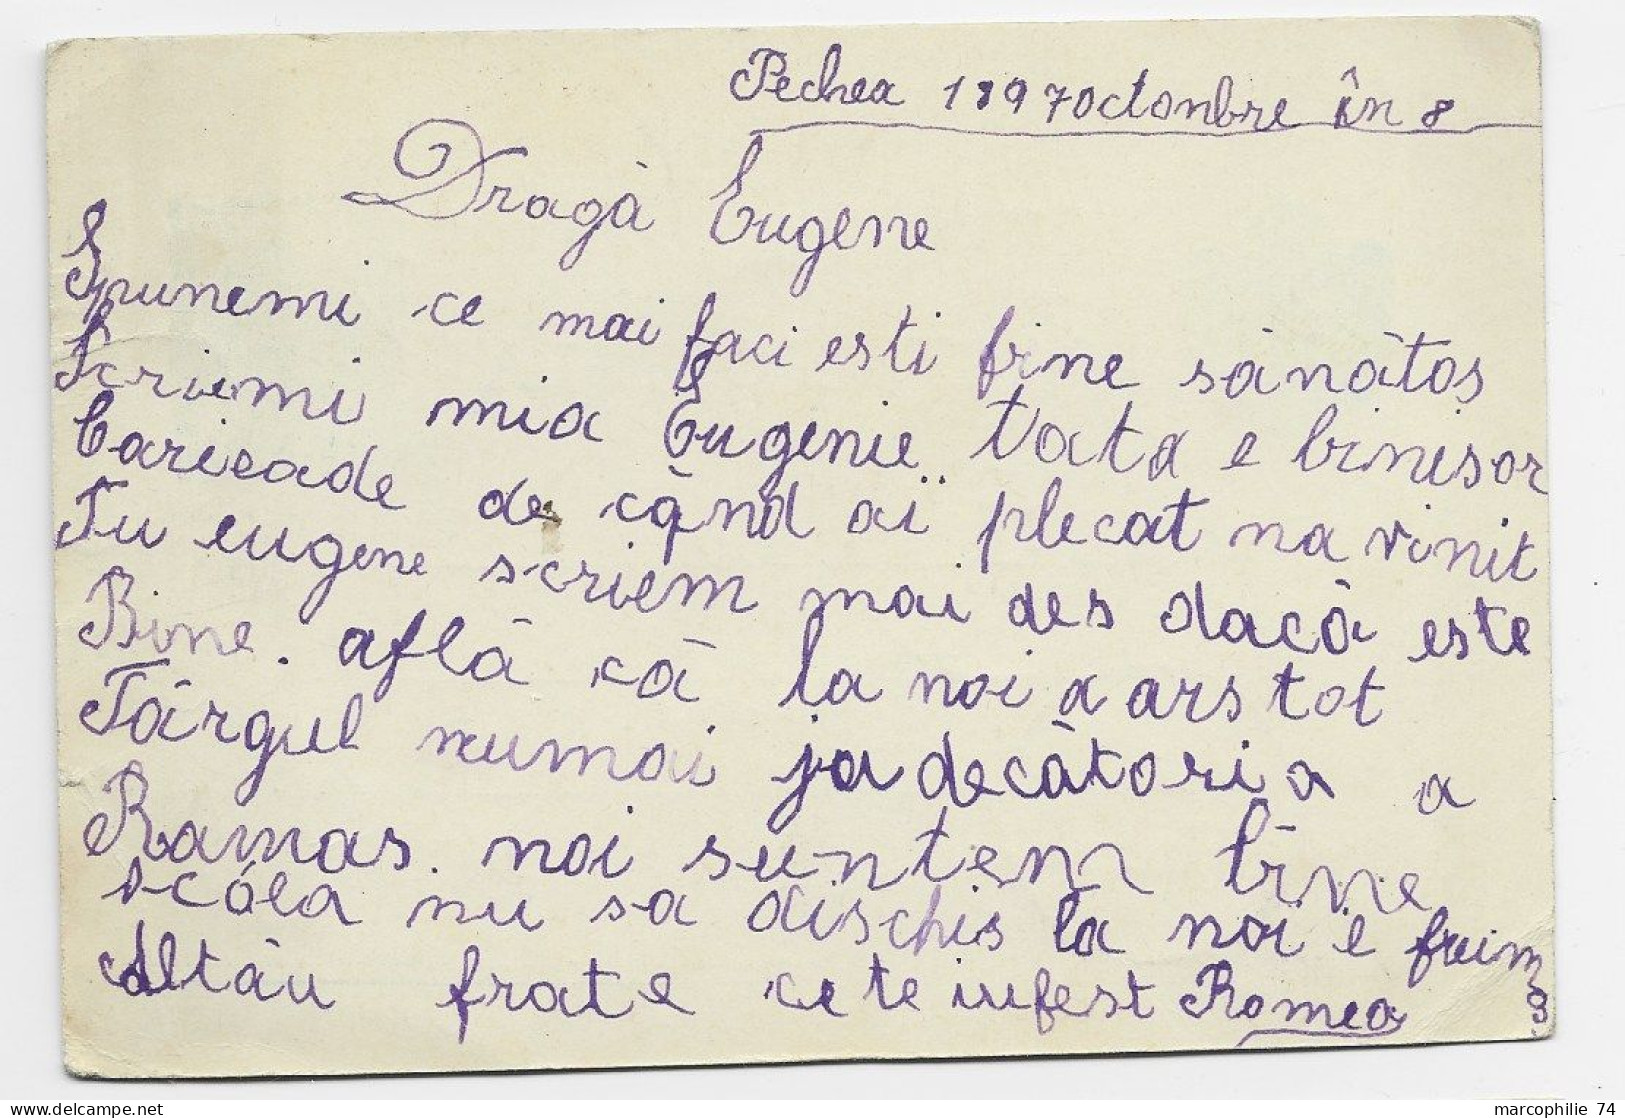 Pechea 1897 octombre în 8
Dragà Eugene
Spunemi ce mai faci esti bine sànàtos
Scriemi mia Eugenie. tata e binisor
Caricade de cànd aï plecat na vinit
Tu eugene scriem mai des dacà este
Bine. aflà cà la noi a ars tot
Târgul numai jadecàtoria a
Ramas. noi suntem bine
scóla nu sa dischis la noi e frumos
Altàu frate ce te iubest Romeo
marcophilie 74